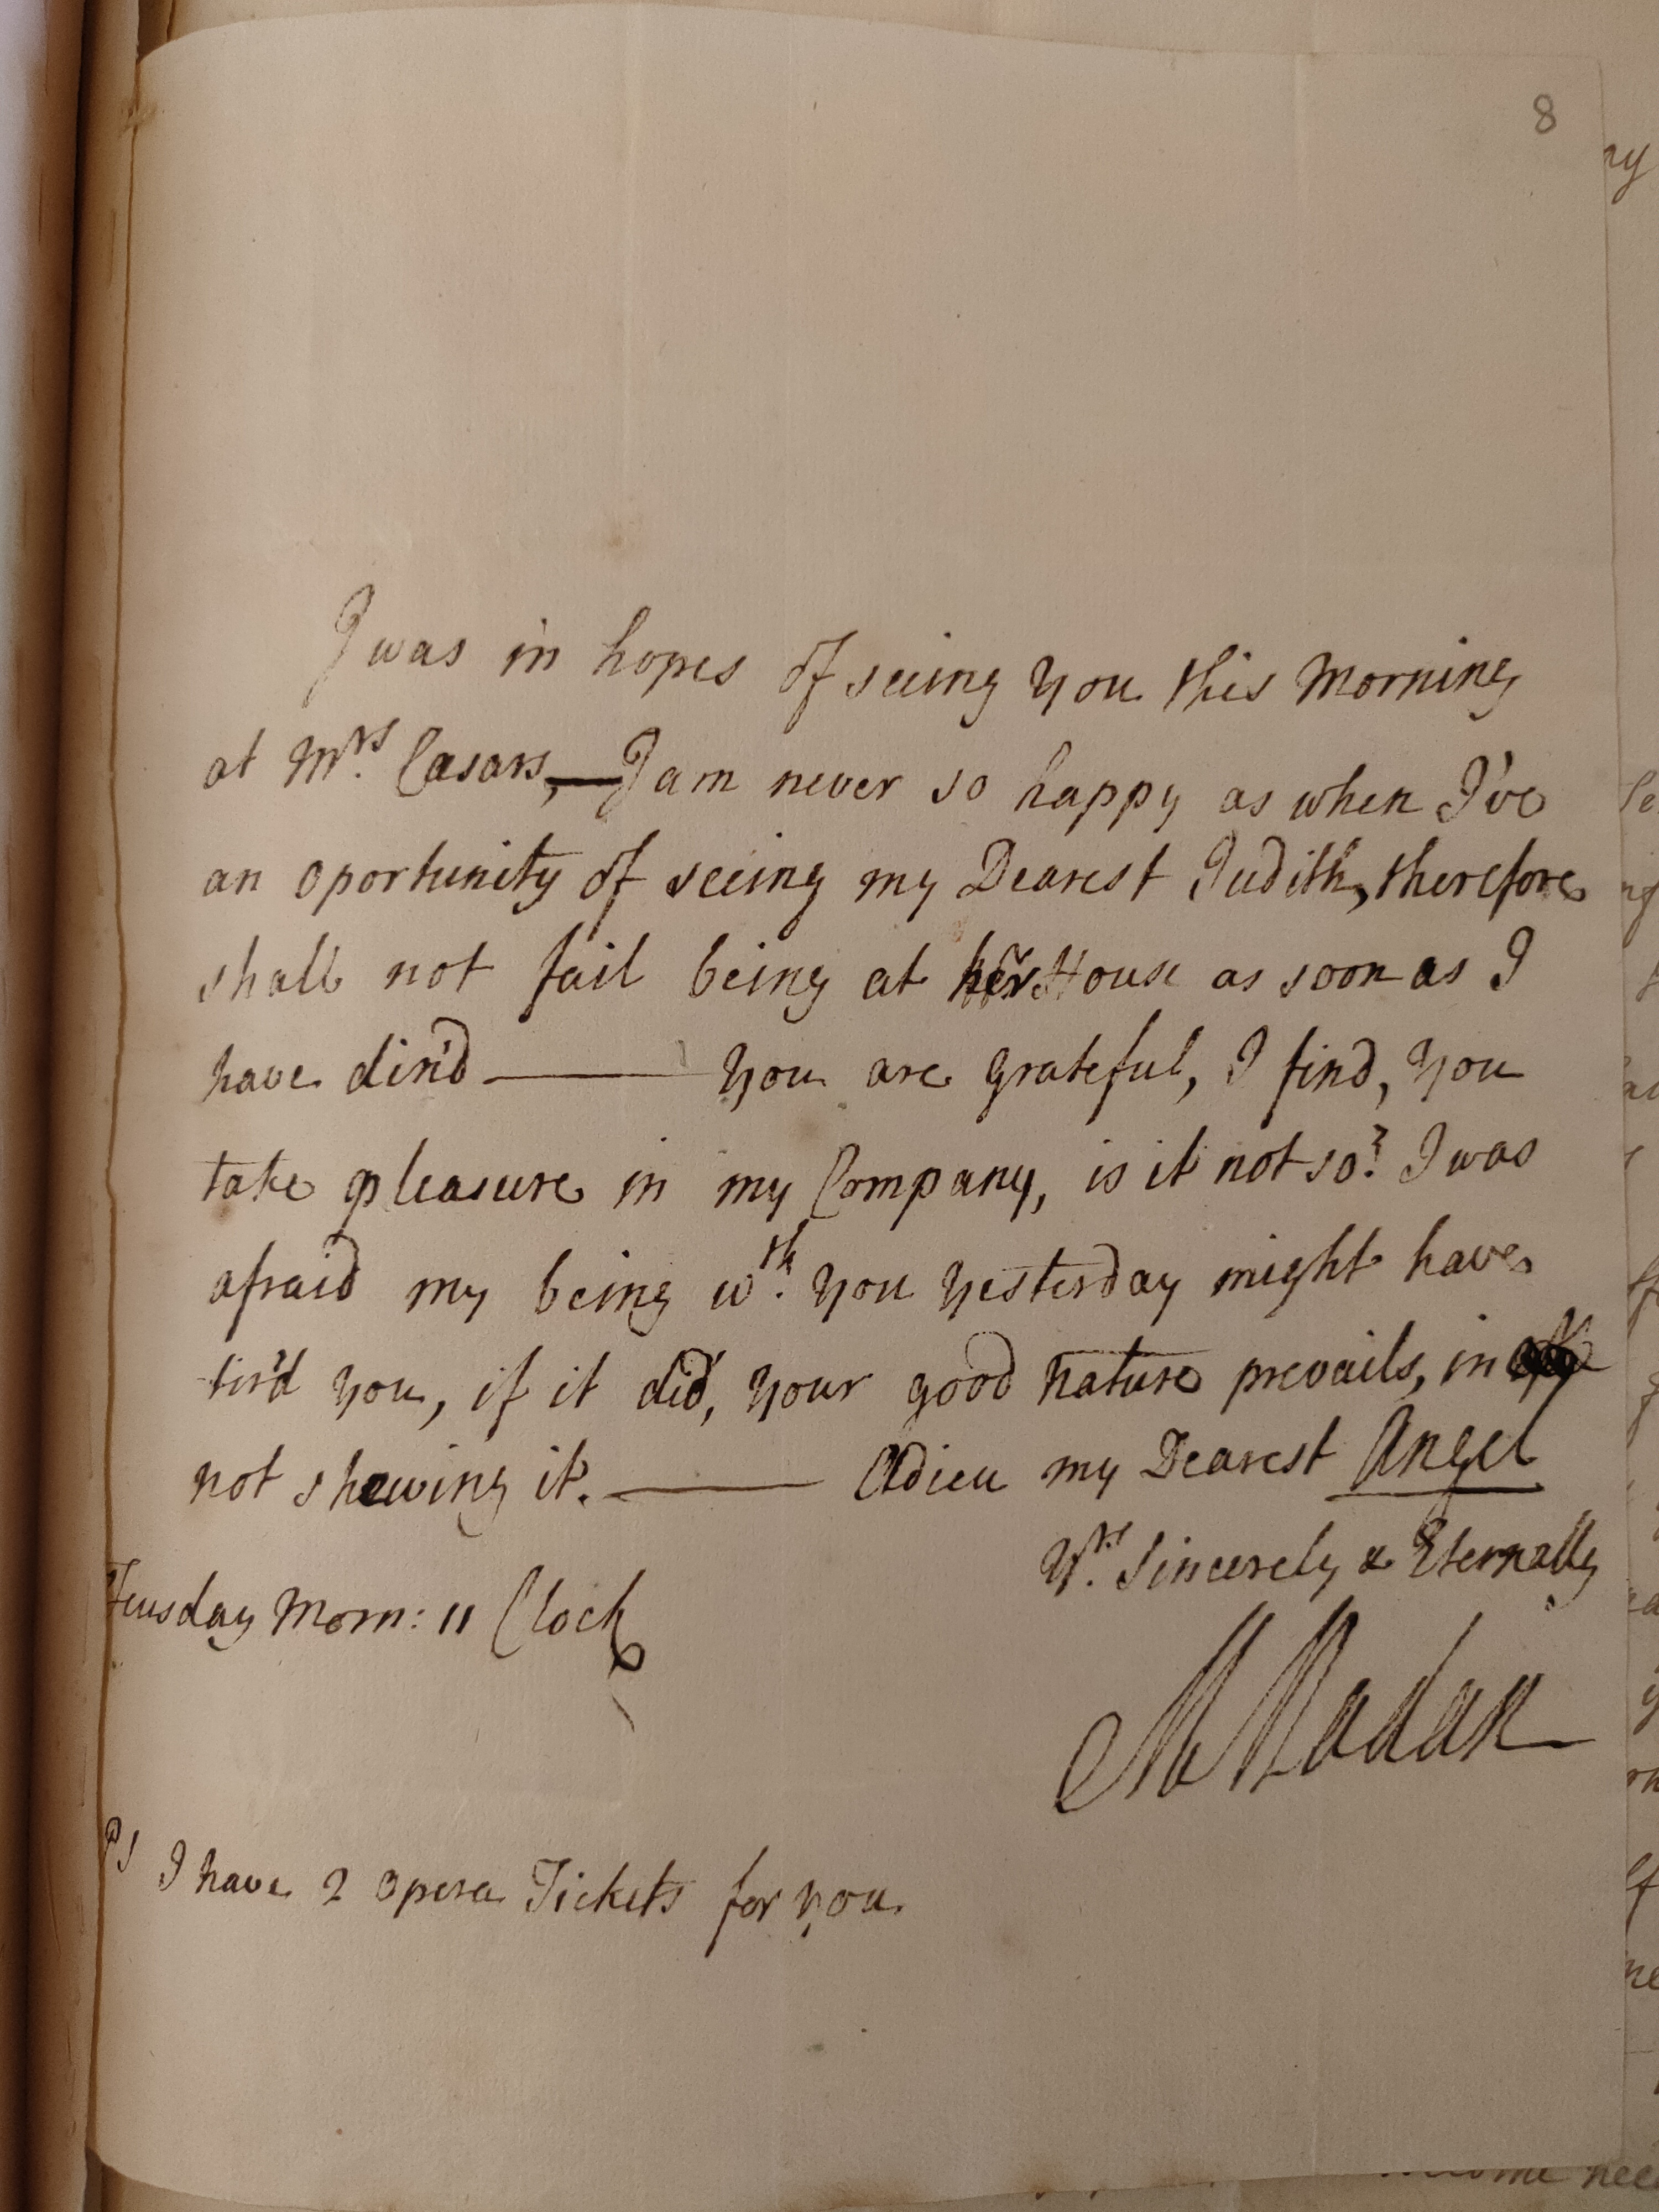 8
I was in hopes of seeing you this Morning
at Mrs. Casars, — I am never so happy as when I've
an oportunity of seeing my Dearest Judith, therefore
shall not fail being at her House as soon as I
have din'd — you are grateful, I find, you
take pleasure in my Company, is it not so? I was
afraid my being wth. you yesterday might have
tir'd you, if it did, your good nature prevails, in
not shewing it. — Adieu my Dearest Angel
Yrs. Sincerely & Eternally
Tuesday Morn: 11 Clock
M Madan
PS I have 2 Opera Tickets for you